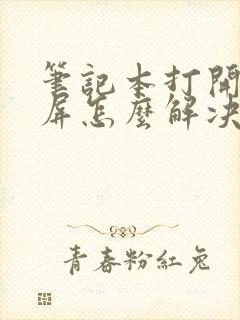 筆記本打開
屏怎麼解決
青春粉紅兔